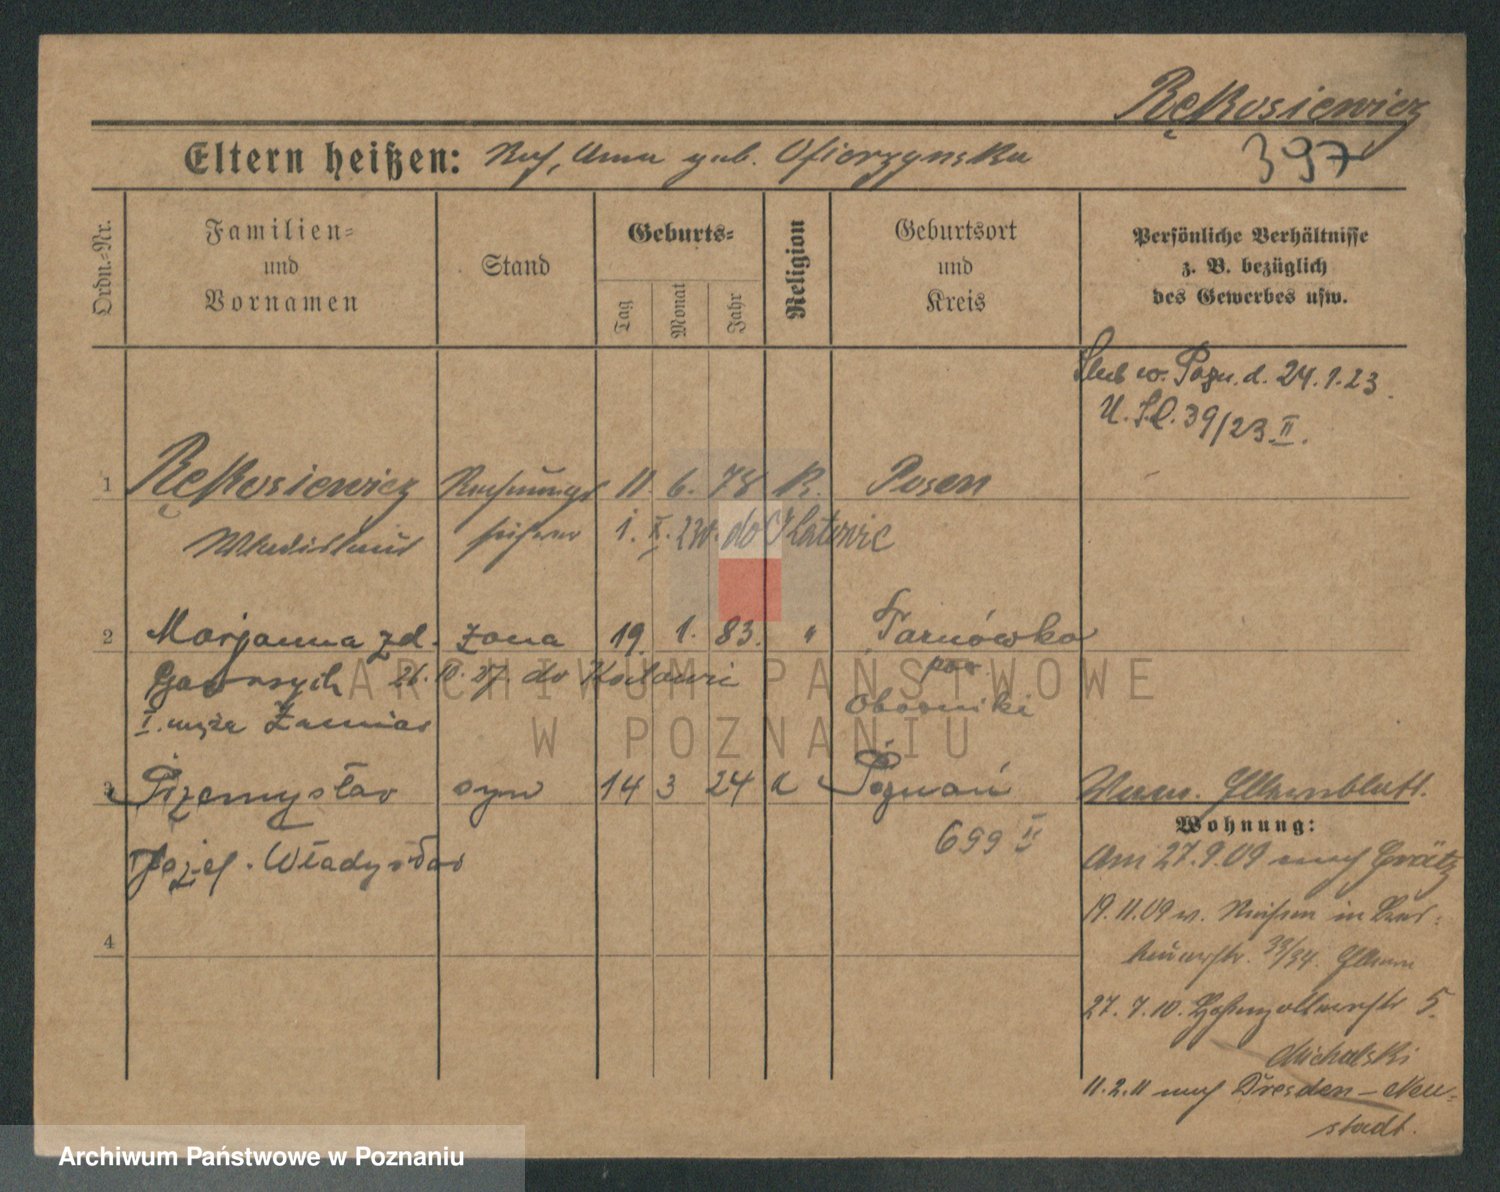 Rękosiewicz
397
Eltern heißen: Anna geb. Ofierzynska
Ordn.-Nr.
Familien-
und
Vornamen
Stand
Geburts-
Tag
Monat
Jahr
Religion
Geburtsort
und
Kreis
Persönliche Verhältnisse
z. B. bezüglich
des Gewerbes usw.
Ślub w. Pozn. d. 24.1.23.
U. S.C. 39/23 II.
1 Rękosiewicz Rechnungs 11. 6. 78 R. Posen
Wladislaus führer 1. X. do Katowic
2 Marjanna zd. żona 19. 1. 83. " Tarnówko
26. 27. do pow.
I. męża Oborniki
3 Przemysław syn 14 3 24 k Poznań
Józef. Władysław 699 II
Elternblatt.
Wohnung:
am 27.9.09 nach Grätz
19.11.09 v. in
33/34.
27.7.10. Hohenzollernstr 5.
Michalski
11.2.11 nach Dresden-Neu-
stadt.
4
ARCHIWUM PAŃSTWOWE
W POZNANIU
Archiwum Państwowe w Poznaniu